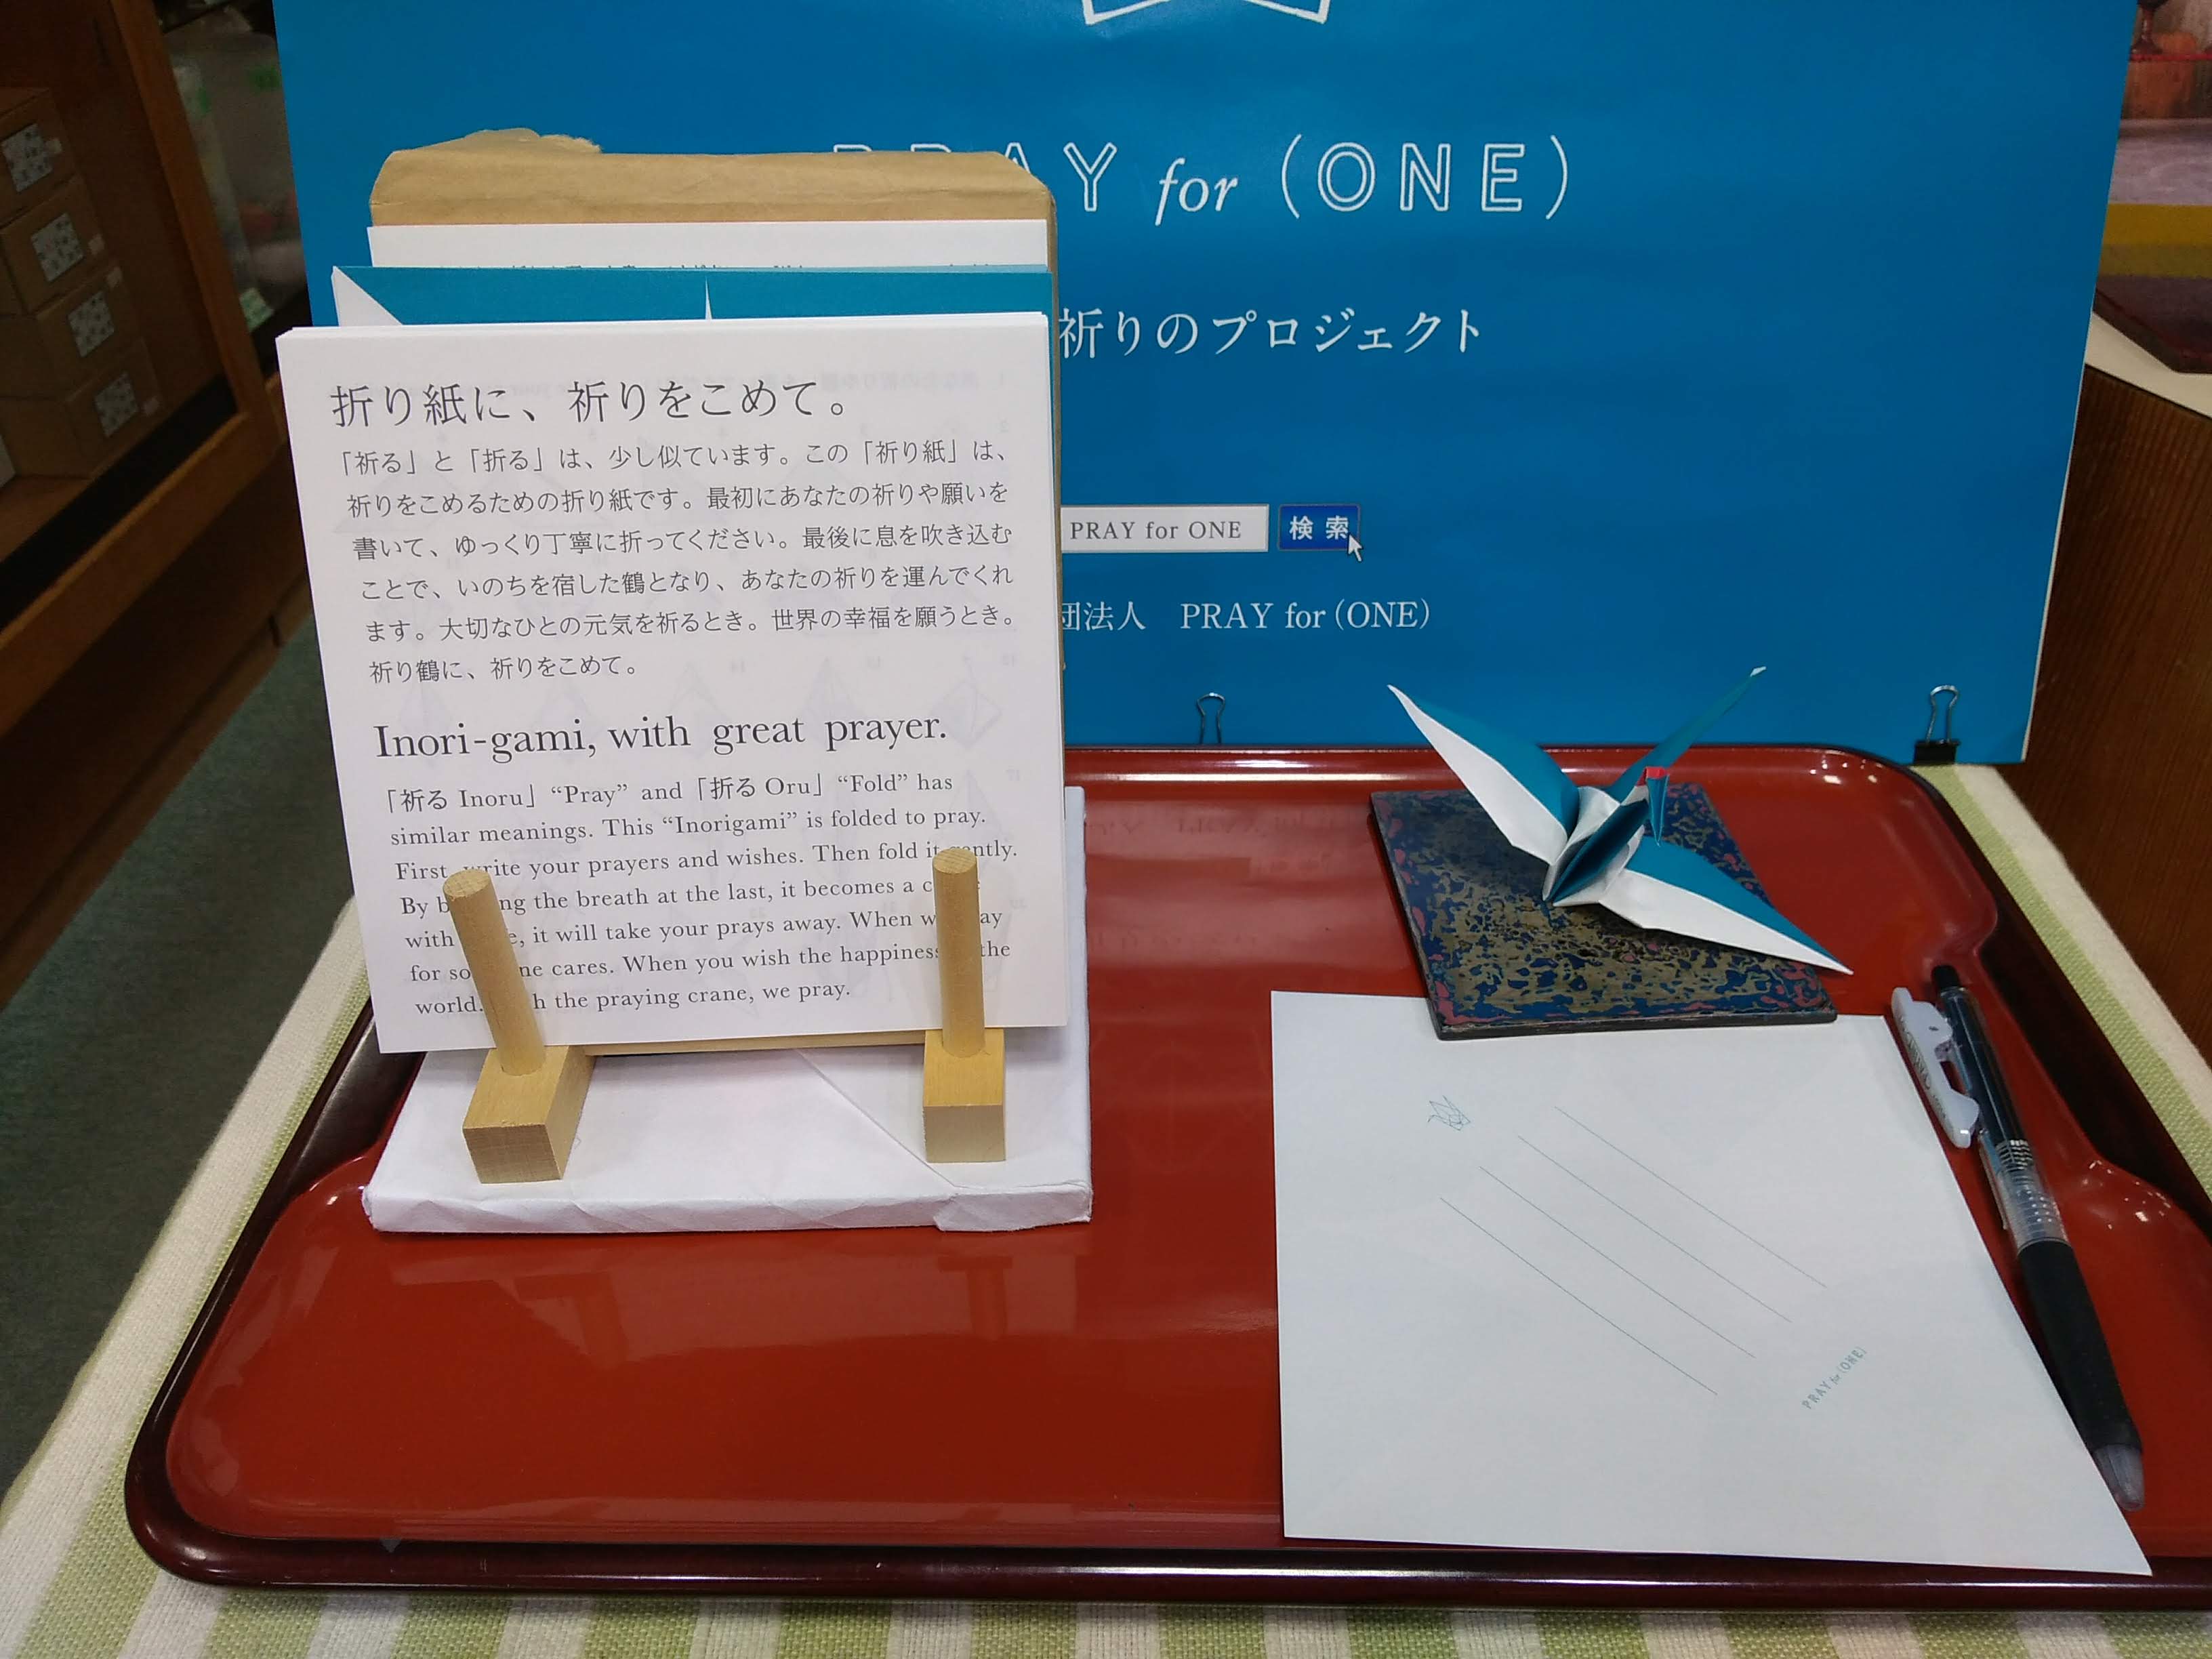 AY for (ONE)
祈りのプロジェクト
PRAY for ONE
検索
団法人 PRAY for (ONE)
折り紙に、祈りをこめて。
「祈る」と「折る」は、少し似ています。この「祈り紙」は、
祈りをこめるための折り紙です。最初にあなたの祈りや願いを
書いて、ゆっくり丁寧に折ってください。最後に息を吹き込む
ことで、いのちを宿した鶴となり、あなたの祈りを運んでくれ
ます。大切なひとの元気を祈るとき。世界の幸福を願うとき。
祈り鶴に、祈りをこめて。
Inori-gami, with great prayer.
「祈る Inoru」 “Pray” and 「折る Oru」 “Fold” has
similar meanings. This “Inorigami” is folded to pray.
First, write your prayers and wishes. Then fold it gently.
By the breath at the last, it becomes a
with it will take your prays away. When
for cares. When you wish the happiness the
world. the praying crane, we pray.
PRAY for (ONE)